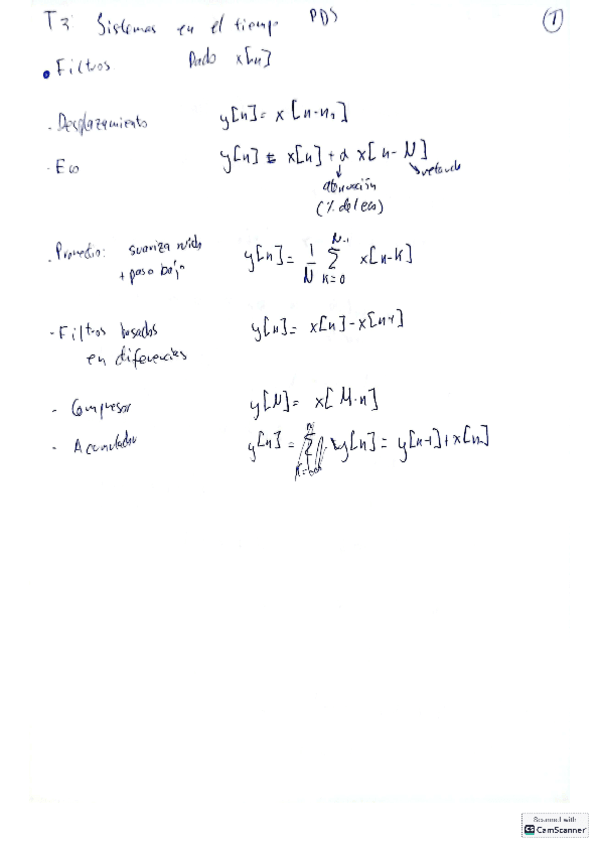 T3: Sistemas en el tiempo PDS ①
• Filtros Dado x[n]
- Desplazamiento y[n] = x[n-n₀]
- Eco y[n] = x[n] + α x[n-N]
↓ ↘ retardo
atenuación
(% del eco)
- Promedio: suaviza ruido y[n] = 1/N Σ x[n-k]
N-1
K=0
+ paso bajo
- Filtros basados y[n] = x[n] - x[n-1]
en diferencias
- Compresor y[N] = x[M·n]
- Acumulador y[n] = y[n] = y[n-1] + x[n]
Scanned with
CS CamScanner